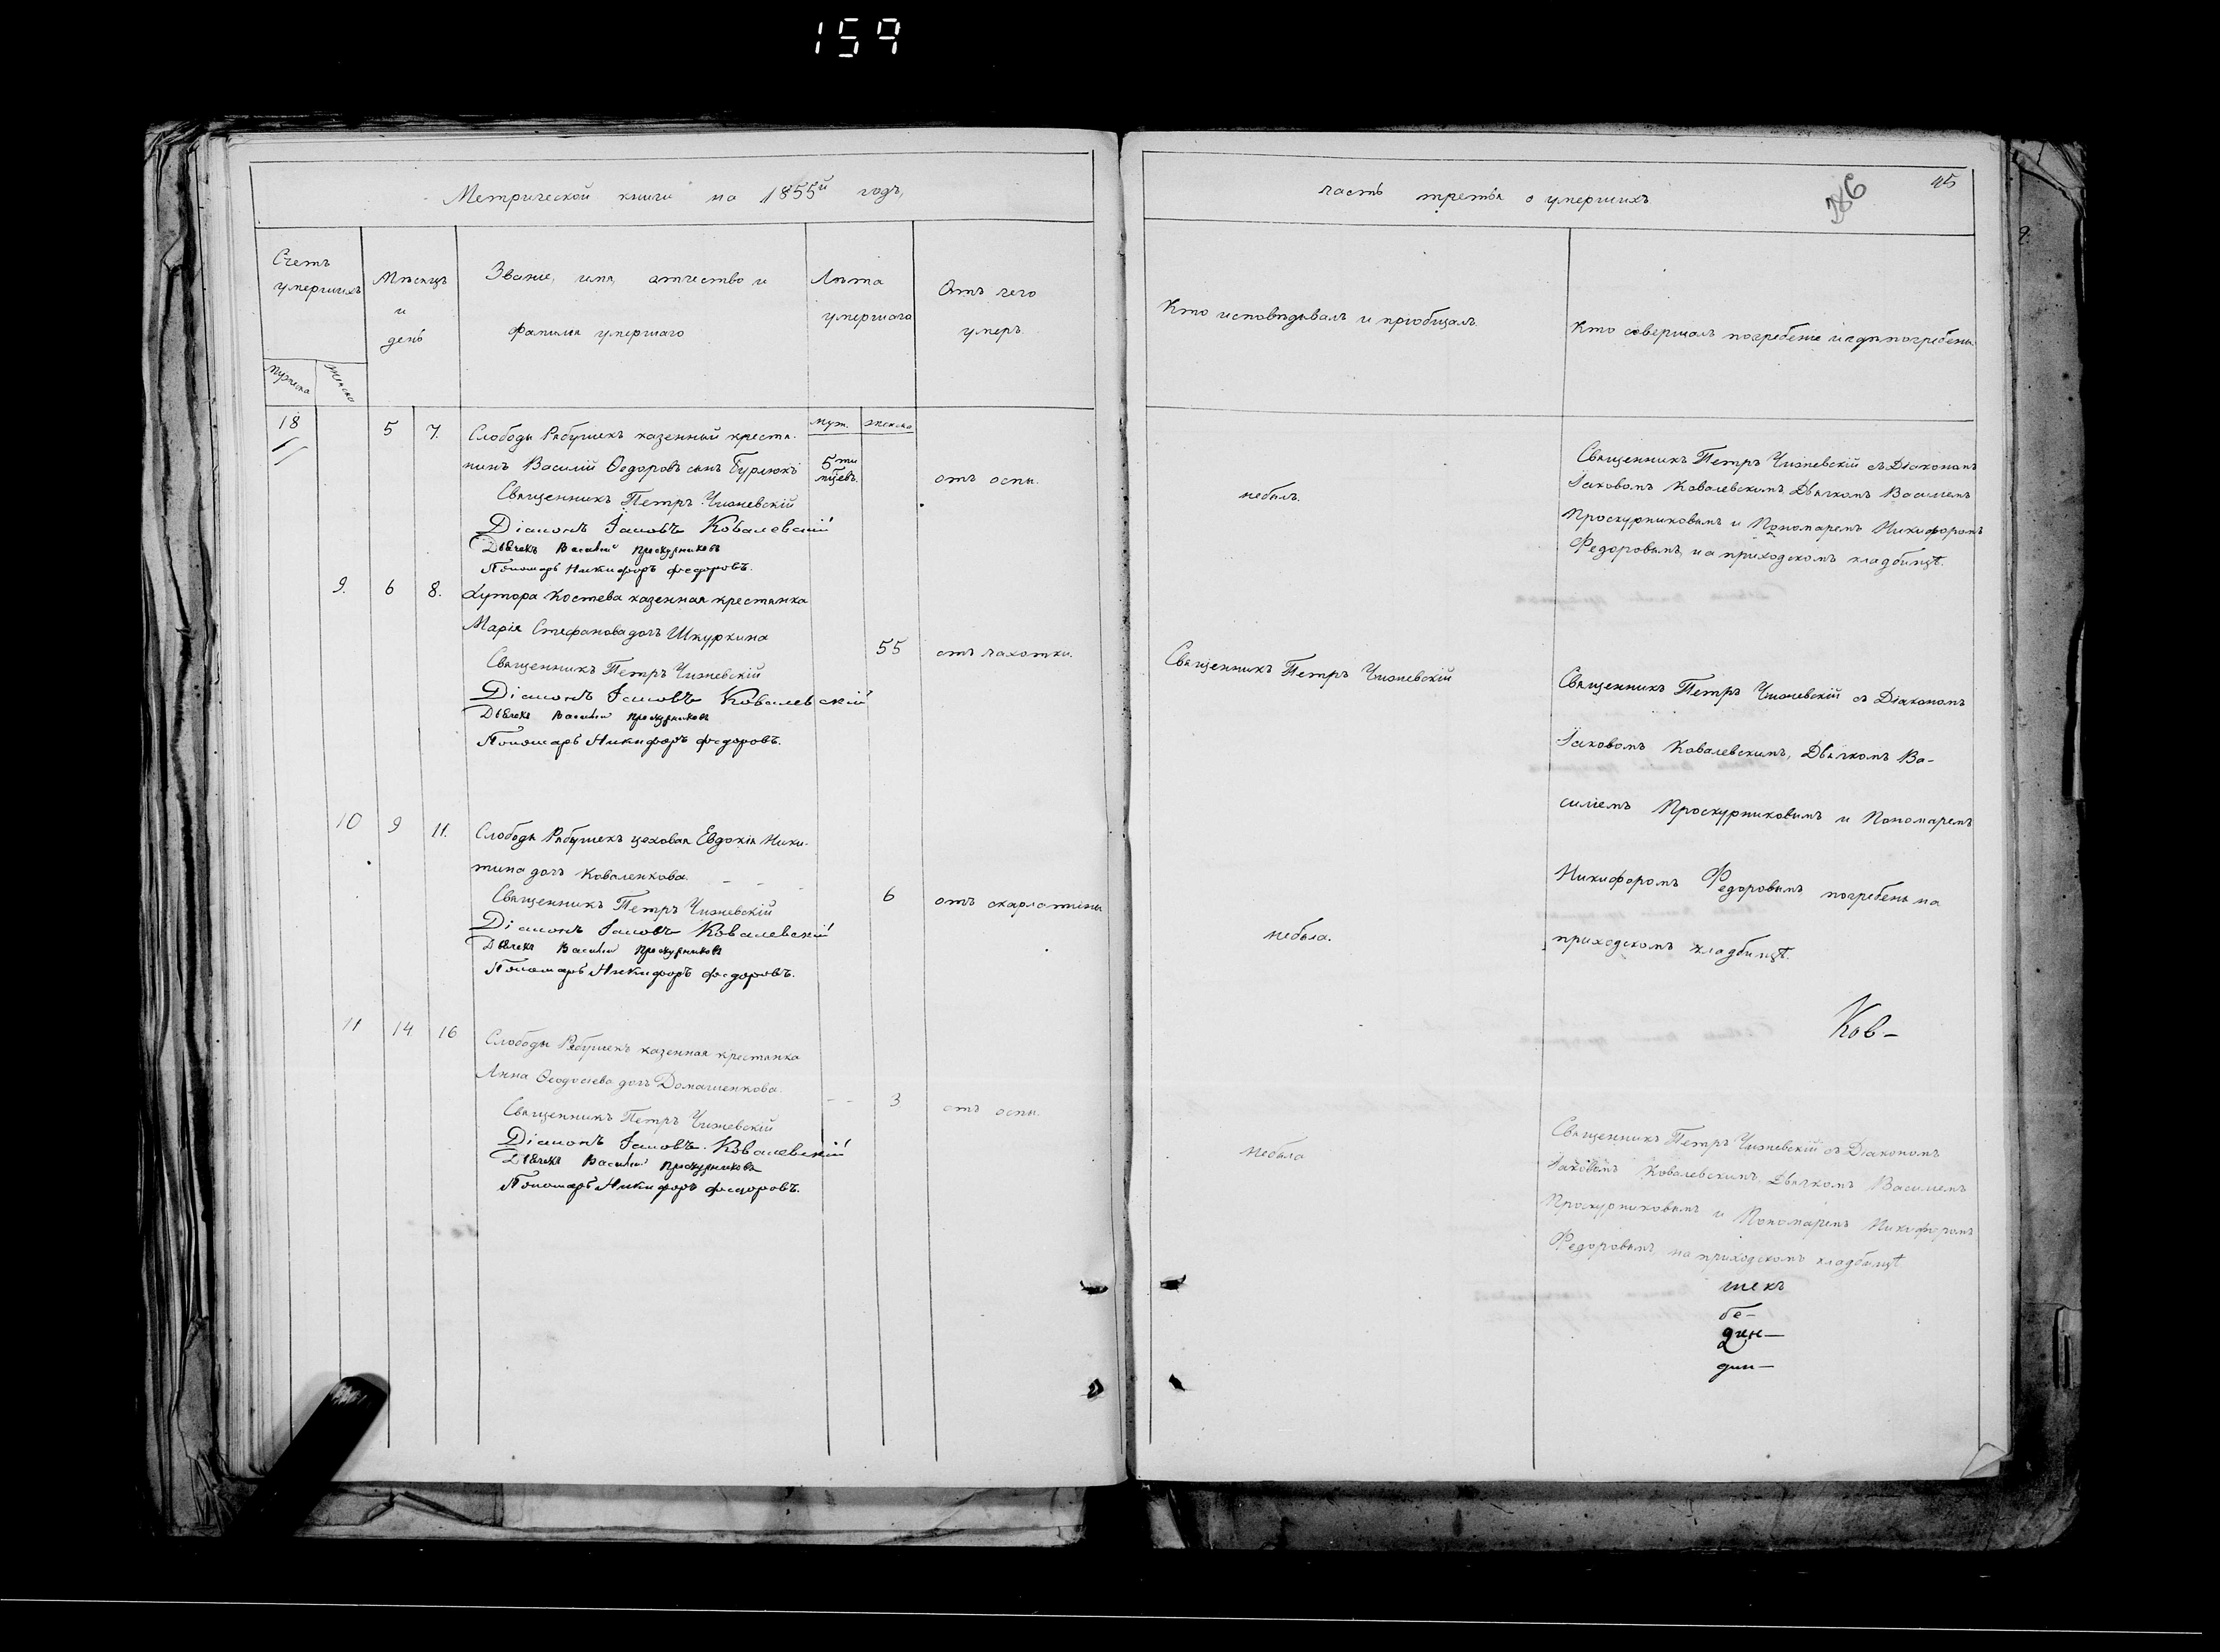 159
Метрической книги на 1855й годъ,
Счетъ умершихъ
Мужеска
Женска
Мѣсяцъ и день
Званіе, имя, отчество и фамилія умершаго
Лѣта умершаго
Отъ чего умеръ.
муж.
женска
18
5
7.
Слободы Рябушекъ казенный крестя-
нинъ Василій Ѳедоровъ сынъ Бурлюкъ
5ти
мцевъ.
отъ оспы.
Священникъ Петръ Чижевскій
Діаконъ Іаковъ Ковалевскій
Дьячекъ Василій Проскурниковъ
Пономарь Никифоръ Федоровъ.
9.
6
8.
Хутора Костева казенная крестьянка
Марія Стефанова дочь Шкуркина
55
отъ чахотки.
Священникъ Петръ Чижевскій
Діаконъ Іаковъ Ковалевскій
Дьячекъ Василій Проскурниковъ
Пономарь Никифоръ Федоровъ.
10
9
11.
Слободы Рябушекъ цеховая Евдокія Ники-
тина дочь Коваленкова.
6
отъ скарлатины
Священникъ Петръ Чижевскій
Діаконъ Іаковъ Ковалевскій
Дьячекъ Василій Проскурниковъ
Пономарь Никифоръ Федоровъ.
11
14
16
Слободы Рябушекъ казенная крестянка
Анна Ѳеодосіева дочь Домашенкова.
3
отъ оспы.
Священникъ Петръ Чижевскій
Діаконъ Іаковъ Ковалевскій
Дьячекъ Василій Проскурниковъ
Пономарь Никифоръ Федоровъ.
часть третья о умершихъ
45
Кто исповѣдывалъ и пріобщалъ.
Кто совершалъ погребеніе и гдѣ погребены.
небылъ.
Священникъ Петръ Чижевскій съ Діакономъ
Іаковомъ Ковалевскимъ Дьячкомъ Василіемъ
Проскурниковымъ и Пономаремъ Никифоромъ
Федоровымъ, на приходскомъ кладбищѣ.
Священникъ Петръ Чижевскій
Священникъ Петръ Чижевскій съ Діакономъ
Іаковомъ Ковалевскимъ, Дьячкомъ Ва-
силіемъ Проскурниковымъ и Пономаремъ
Никифоромъ Федоровымъ погребены на
приходскомъ кладбищѣ.
небыла.
Ков-
Небыла
Священникъ Петръ Чижевскій съ Діакономъ
Іаковомъ Ковалевскимъ, Дьячкомъ Василіемъ
Проскурниковымъ и Пономаремъ Никифоромъ
Федоровымъ на приходскомъ кладбищѣ
шекъ
бе-
дин-
дин-